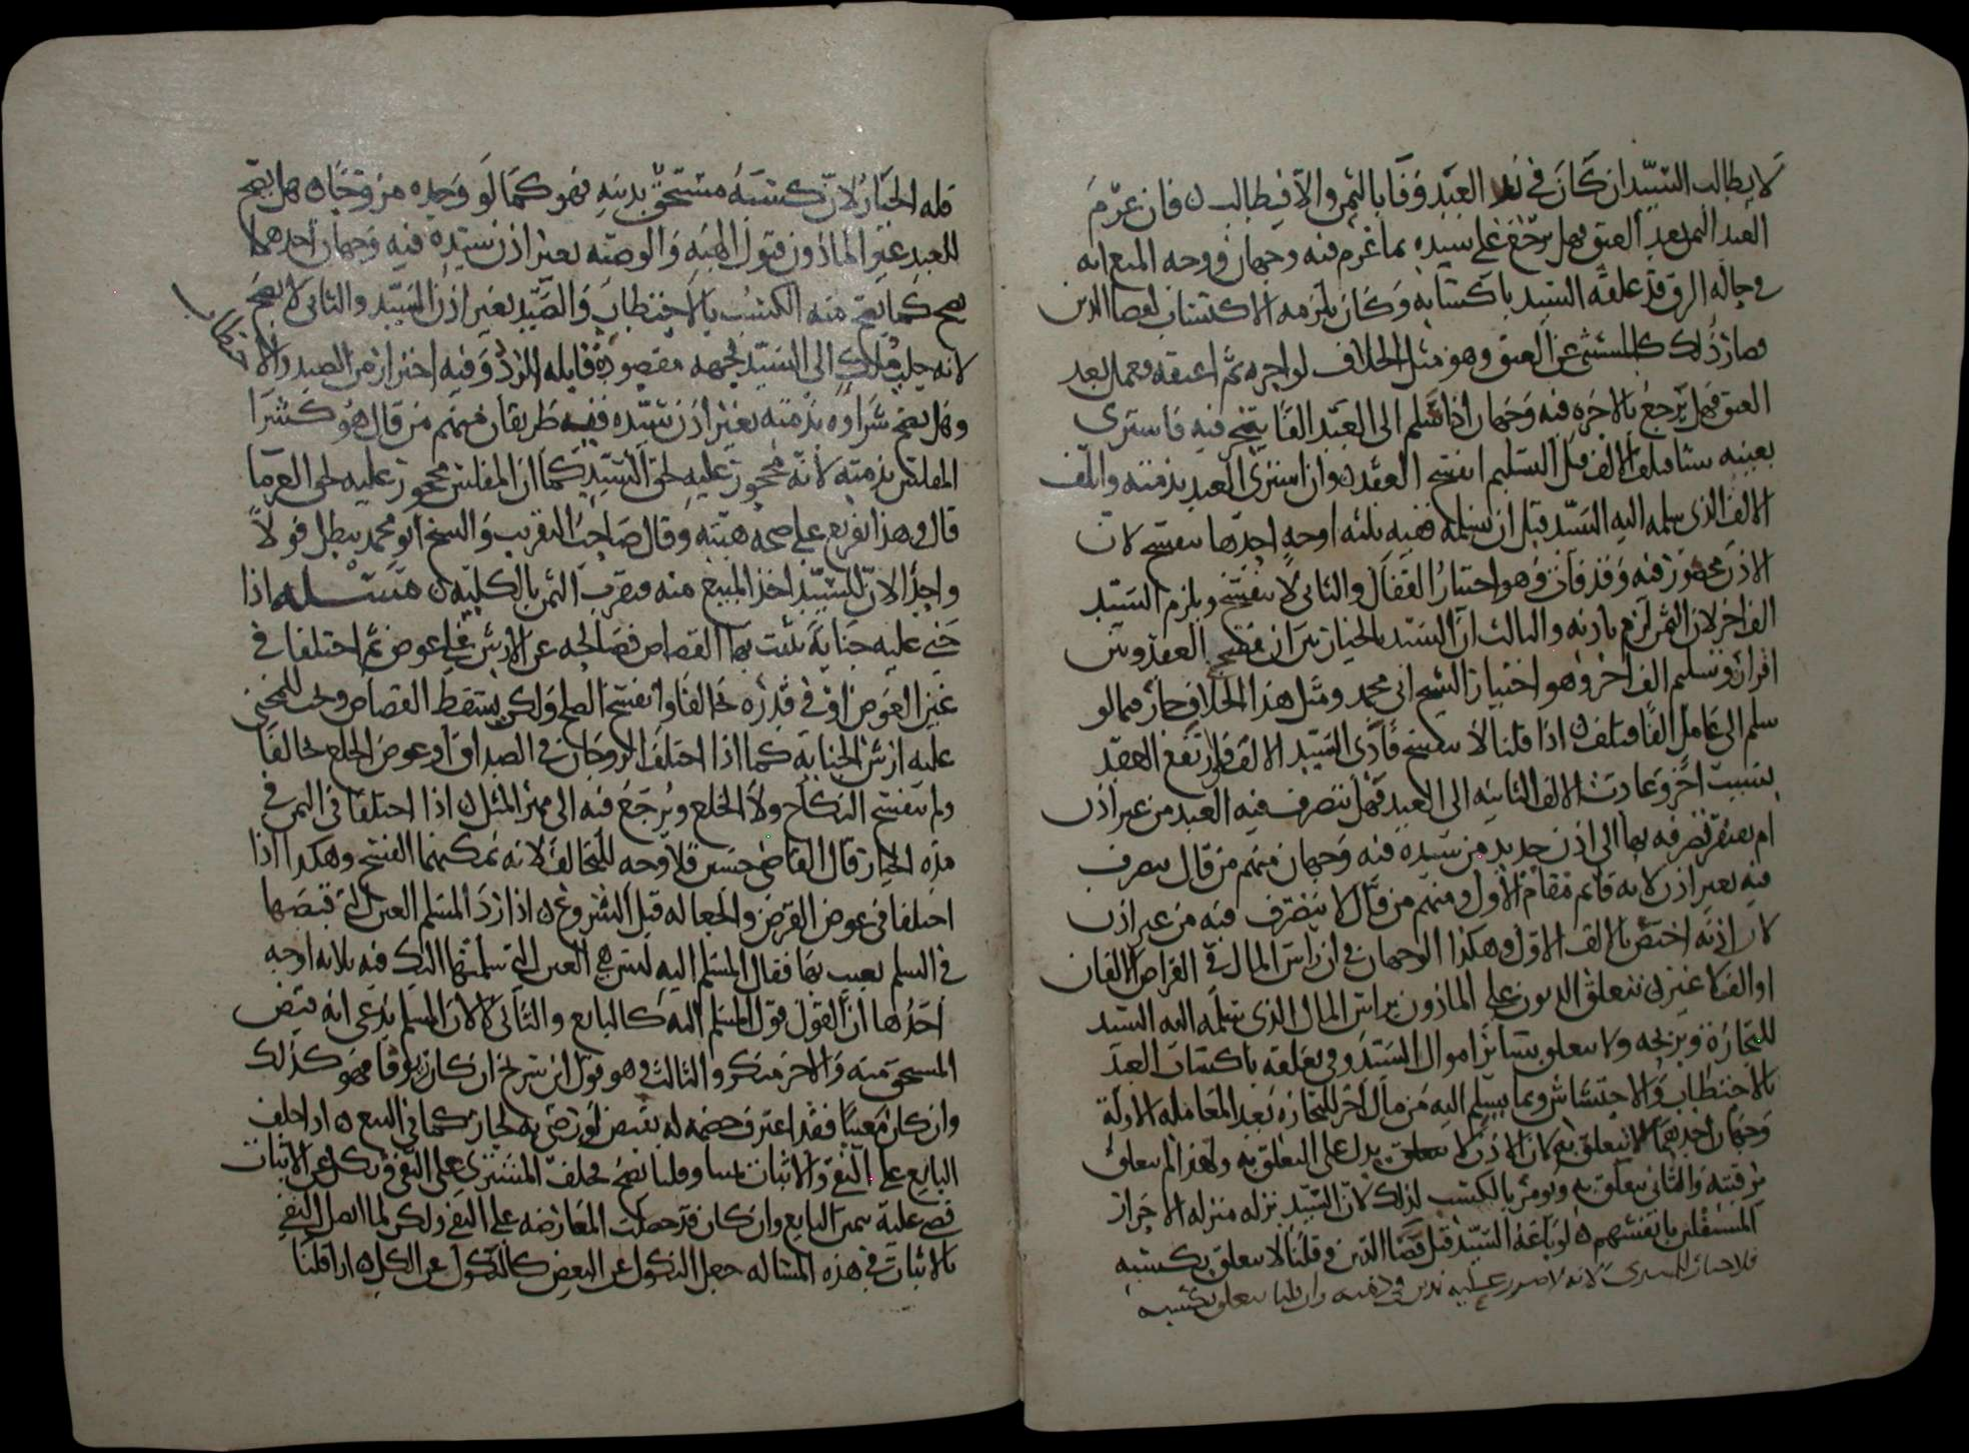 لا يطالب السيد ان كان في يد العبد وفا بالثمن والا فيطالب ه فان غرم
العبد الثمن بعد العتق فهل يرجع على سيده بما غرم فيه وجهان ووجه المنع انه
في حاله الرق قد علقه السيد باكتسابه وكان يلزمه الاكتساب لقضا الدين
فصار ذلك كالمستثنى عن العتق وهو مثل الخلاف لو اجره ثم اعتقه فعمل بعد
العتق فهل يرجع بالاجره فيه وجهان اذا سلم الى العبد الفا يتجر فيه فاشترى
بعينه شيا فتلف الالف قبل التسليم انفسخ العقد ه وان اشترى العبد بذمته وتلف
الالف الذي سلمه اليه السيد قبل ان يسلمه ففيه ثلثه اوجه احدها ينفسخ لان
الاذن محصور فيه وقد فات وهو اختيار القفال والثاني لا ينفسخ ويلزم السيد
الف اخر لان الثمن لزم باذنه والثالث ان السيد بالخيار بين ان يفسخ العقد وبين
اقراره وتسليم الف اخر وهو اختيار الشيخ ابي محمد ومثل هذا الخلاف جار فيما لو
سلم الى عامل الفا فتلف ه اذا قلنا لا ينفسخ فادى السيد الالف فارتفع العقد
بسبب اخر وعادت الالف الثانيه الى العبد فهل يتصرف فيه العبد من غير اذن
ام يفتقر تصرفه بها الى اذن جديد من سيده فيه وجهان منهم من قال يتصرف
فيه بغير اذن لانه قائم مقام الاول ومنهم من قال لا يتصرف فيه من غير اذن
لان اذنه اختص بالالف الاول وهكذا الوجهان في ان راس المال في القراض الالفان
او الف لا غير ه تتعلق الديون على الماذون براس المال الذي سلمه اليه السيد
للتجارة وبربحه ولا يتعلق بسائر اموال السيد وفي تعلقه باكتساب العبد
بالاحتطاب والاحتشاش وبما يسلم اليه من مال اخر للتجاره بعد المعامله الاولة
وجهان احدهما لا يتعلق به لان الاذن لا يدل على التعلق به ولهذا لم يتعلق
برقبته والثاني يتعلق به ويومر بالكسب لذلك لان السيد نزله منزله الاحرار
المستقلين بانفسهم ه لو باعه السيد قبل قضا الدين وقلنا لا يتعلق بكسبه
فلا خيار للمشتري لانه لا ضرر عليه بدين في ذمته وان قلنا يتعلق بكسبه
فله الخيار لان كسبه مستحق بدينه فهو كما لو وجده مزوجا ه هل يصح
للعبد غير الماذون قبول الهبه والوصيه بغير اذن سيده فيه وجهان احدهما
يصح كما يصح منه الكسب بالاحتطاب والصيد بغير اذن السيد والثاني لا يصح
لانه جلب ملك الى السيد بجهه مقصوده قابله للرد وفيه احتراز من الصيد والا
حتطاب
وهل يصح شراوه بذمته بغير اذن سيده ففيه طريقان فمنهم من قال هو كشرا
المفلس بذمته لانه محجور عليه لحق السيد كما ان المفلس محجور عليه لحق الغرما
قال وهذا تفريع على صحه هبته وقال صاحب التقريب والشيخ ابو محمد يبطل قولا
واحدا لان للسيد اخذ المبيع منه فيضرب الثمن بالكليه ه مسله اذا
جني عليه جناية يثبت بها القصاص فصالحه عن الارش على عوض ثم اختلفا في
عين العوض او في قدره تحالفا وانفسخ الصلح ولكن يسقط القصاص ويجب للمجني
عليه ارش الجنايه كما اذا اختلف الزوجان في الصداق او عوض الخلع تحالفا
ولم ينفسخ النكاح ولا الخلع ويرجع فيه الى مهر المثل ه اذا اختلفا في الثمن في
مده الخيار قال القاضي حسين فلا وجه للتحالف لانه يمكنهما الفسخ وهكذا اذا
اختلفا في عوض القرض والجعاله قبل الشروع ه اذا رد المسلم العين التي قبضها
في السلم بعيب بها فقال المسلم اليه ليس هي العين التي سلمتها اليك فيه ثلاثه اوجه
احدها ان القول قول المسلم اليه كالبايع والثاني لا لان المسلم يدعي انه قبض
المستحق منه والاخر منكر والثالث وهو قول ابن سريج ان كان زيوفا فهو كذلك
وان كان معيبا فقد اعترف خصمه له بقبض لو رضي به لجاز كما في البيع ه اذا حلف
البايع على النفي والاثبات يمينا وقلنا يصح فحلف المشتري على النفي ونكل عن الاثبات
قضي عليه بيمين البايع وان كان قد حصلت المعارضه على النفي ولكن لما اتصل النفي
بالاثبات في هذه المساله جعل النكول عن البعض كالنكول عن الكل ه اذا قلنا